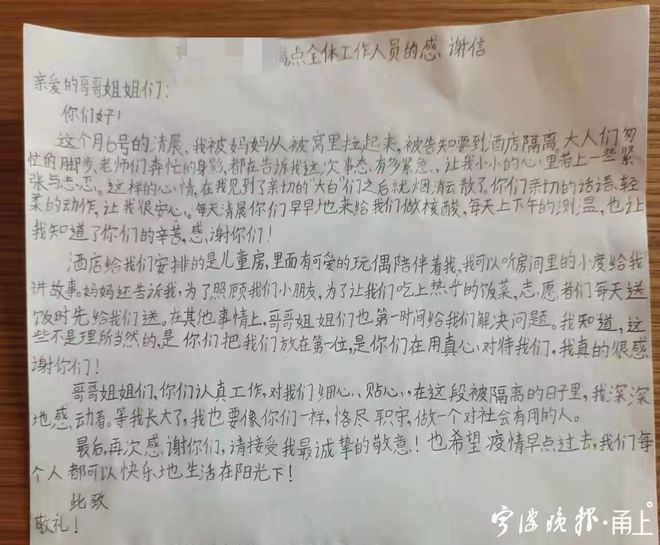 点全体工作人员的感谢信
亲爱的哥哥姐姐们:
你们好!
这个月6号的清晨,我被妈妈从被窝里拉起来,被告知要到酒店隔离。大人们匆
忙的脚步,老师们奔忙的身影,都在告诉我这次事态有多紧急,让我小小的心里带上一些紧
张与忐忑。这样的心情,在我见到了亲切的“大白”们之后就烟消云散了。你们亲切的话语、轻
柔的动作,让我很安心。每天清晨你们早早地来给我们做核酸,每天上下午的测温,也让
我知道了你们的辛苦,感谢你们!
酒店给我们安排的是儿童房,里面有可爱的玩偶陪伴着我。我可以听房间里的小度给我
讲故事。妈妈还告诉我,为了照顾我们小朋友,为了让我们吃上热乎的饭菜,志愿者们每天送
饭时先给我们送。在其他事情上,哥哥姐姐们也第一时间给我们解决问题。我知道,这
些不是理所当然的,是你们把我们放在第一位,是你们在用真心对待我们,我真的很感
谢你们!
哥哥姐姐们,你们认真工作,对我们细心、贴心,在这段被隔离的日子里,我深深
地感动着。等我长大了,我也要像你们一样,恪尽职守,做一个对社会有用的人。
最后,再次感谢你们,请接受我最诚挚的敬意!也希望疫情早点过去,我们每
个人都可以快乐地生活在阳光下!
此致
敬礼!
宁波晚报·甬上